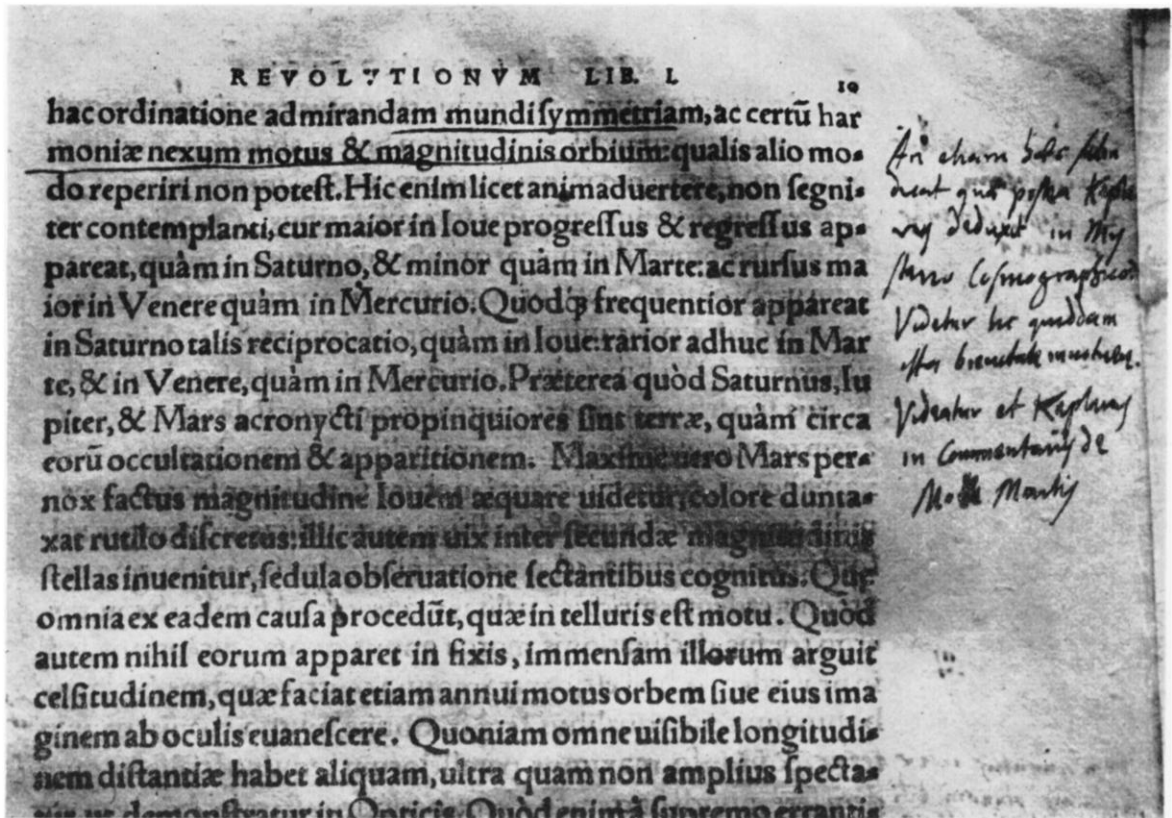 REVOLVTIONVM LIB. I. 10
hac ordinatione admirandam mundi ſymmetriam, ac certũ har
moniæ nexum motus & magnitudinis orbium: qualis alio mo-
do reperiri non poteſt. Hic enim licet animaduertere, non ſegni-
ter contemplanti, cur maior in Ioue progreſſus & regreſſus ap-
pareat, quàm in Saturno, & minor quàm in Marte: ac rurſus ma
ior in Venere quàm in Mercurio. Quodq́ꝫ frequentior appareat
in Saturno talis reciprocatio, quàm in Ioue: rarior adhuc in Mar
te, & in Venere, quàm in Mercurio. Præterea quòd Saturnus, Iu
piter, & Mars acronycti propinquiores ſint terræ, quàm circa
eorũ occultationem & apparitionem. Maxime uero Mars per-
nox factus magnitudine Iouem æquare uidetur, colore dunta-
xat rutilo diſcretus: illic autem uix inter ſecundæ magnitudinis
ſtellas inuenitur, ſedula obſeruatione ſectantibus cognitus. Quę
omnia ex eadem cauſa procedũt, quæ in telluris eſt motu. Quòd
autem nihil eorum apparet in fixis, immenſam illorum arguit
celſitudinem, quæ faciat etiam annui motus orbem ſiue eius ima
ginem ab oculis euaneſcere. Quoniam omne uiſibile longitudi-
nem diſtantiæ habet aliquam, ultra quam non amplius ſpecta-
tur, ut demonſtratur in Opticis. Quòd enim à ſupremo errantiũ
An etiam
postea Keple
rus deduxit in My
sterio Cosmographico
Videtur hic quiddam
brevitate
Videatur et Keplerus
in Commentarijs de
Motu Martis